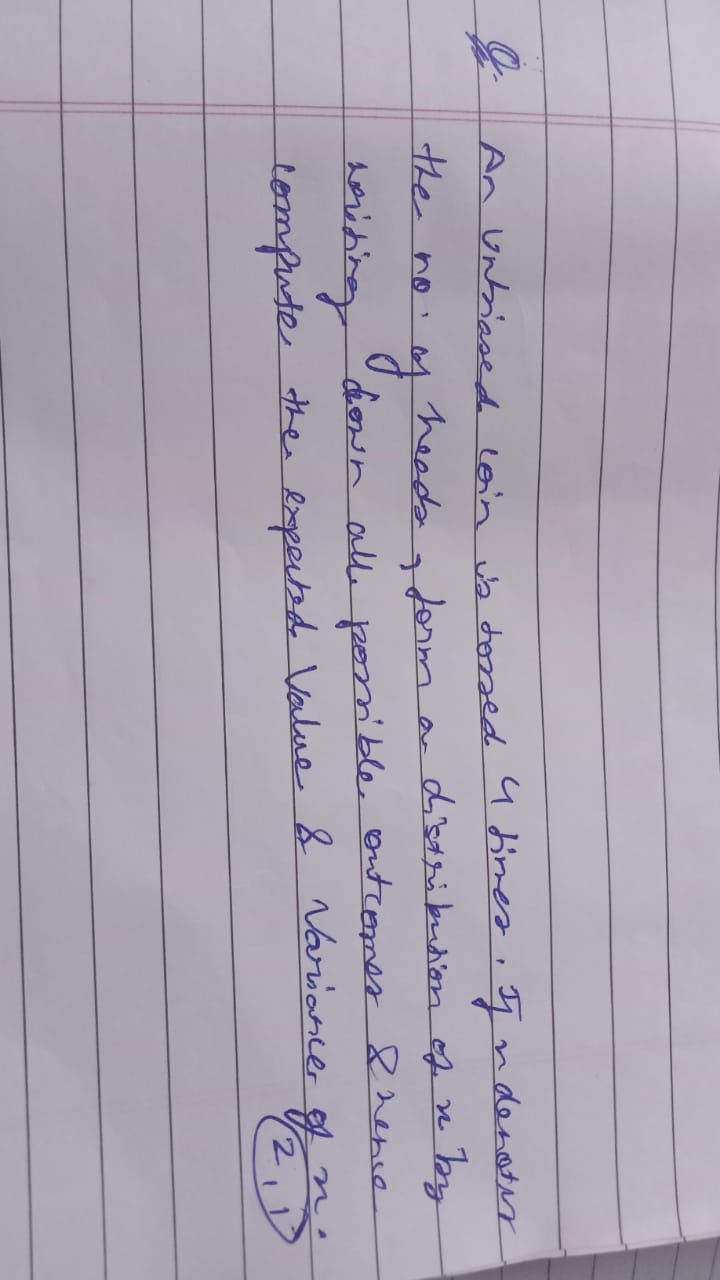 Q. An unbiased coin is tossed 4 times. If x denotes
the no. of heads, form a distribution of x by
writing down all possible outcomes & hence
compute the expected value & Variance of x.
2, 1